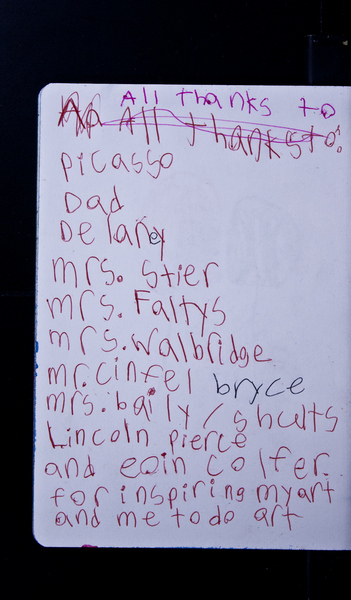 All thanks to
All thanks to:
picasso
Dad
Delaney
mrs. Stier
mrs. Faltys
mrs. Walbridge
mr. cinfel bryce
mrs. baily / shults
Lincoln pierce
and eoin colfer.
for inspiring my art
and me to do art